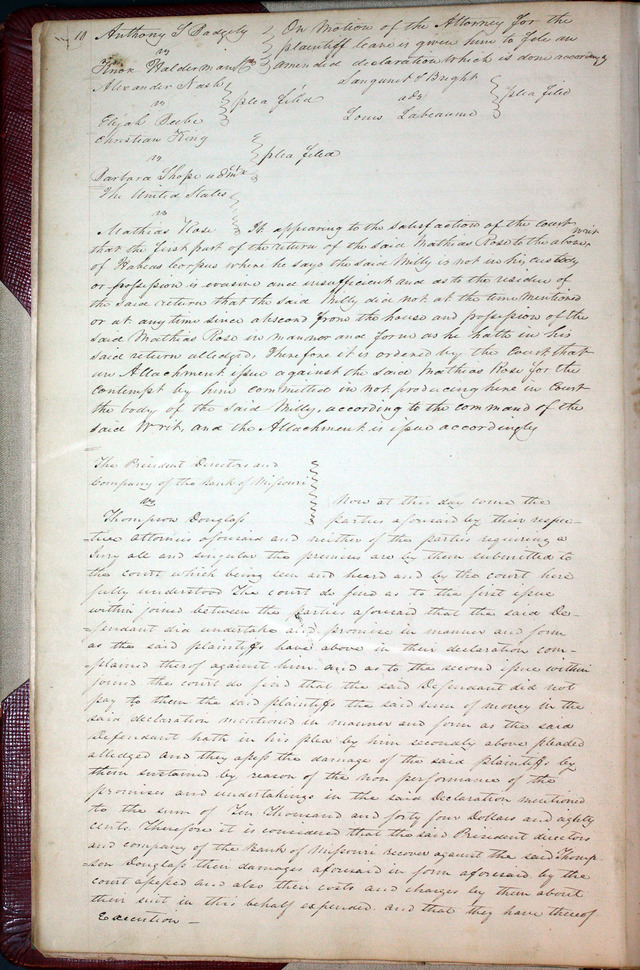 10 Anthony S Badgely } On Motion of the Attorney for the
vs } plaintiff leave is given him to file an
Knox Walderman } amended declaration which is done accordingly
Alexander Nash } Sanguinet & Bright }
vs } plea filed ads } plea filed
Elijah Beebe } Louis Labeaume }
Christian King }
vs } plea filed
Barbara Shope admx }
The United States }
vs }
Mathias Rose } It appearing to the satisfaction of the court
that the first part of the return of the said Mathias Rose to the above writ
of Habeas Corpus where he says the said Milly is not in his custody
or possession is evasive and insufficient and as to the residue of
the said return that the said Milly did not at the time mentioned
or at any time since abscond from the house and possession of the
said Mathias Rose in mannor and form as he hath in his
said return alledged, Therefore it is ordered by the Court that
an Attachment issue against the said Mathias Rose for the
contempt by him committed in not producing here in Court
the body of the said Milly, according to the command of the
said Writ, and the Attachment is issue accordingly
The President Directors and }
Company of the Bank of Missouri }
vs } Now at this day come the
Thompson Douglass } parties aforesaid by their respec-
tive attornies aforesaid and neither of the parties requiring a
Jury all and singular the premises are by them submitted to
the court which being seen and heard and by the court here
fully understood The court do find as to the first issue
within joined between the parties aforesaid that the said De-
-fendant did undertake and promise in manner and form
as the said plaintiffs have above in their declaration com-
-plained therof against him and as to the second issue within
joined the court do find that the said Defendant did not
pay to them the said plaintiffs the said sum of money in the
said declaration mentioned in manner and form as the said
Defendant hath in his plea by him secondly above pleaded
alledged and they assess the damage of the said plaintiffs by
them sustained by reason of the non performance of the
promises and undertakings in the said Declaration mentioned
to the sum of Ten Thousand and forty four Dollars and eighty
cents Therefore it is considered that the said President directors
and company of the Bank of Missouri recover against the said Thomp-
-son Douglass their damages aforesaid in form aforesaid by the
court assessed and also their costs and charges by them about
their suit in this behalf expended. and that they have thereof
Execution -